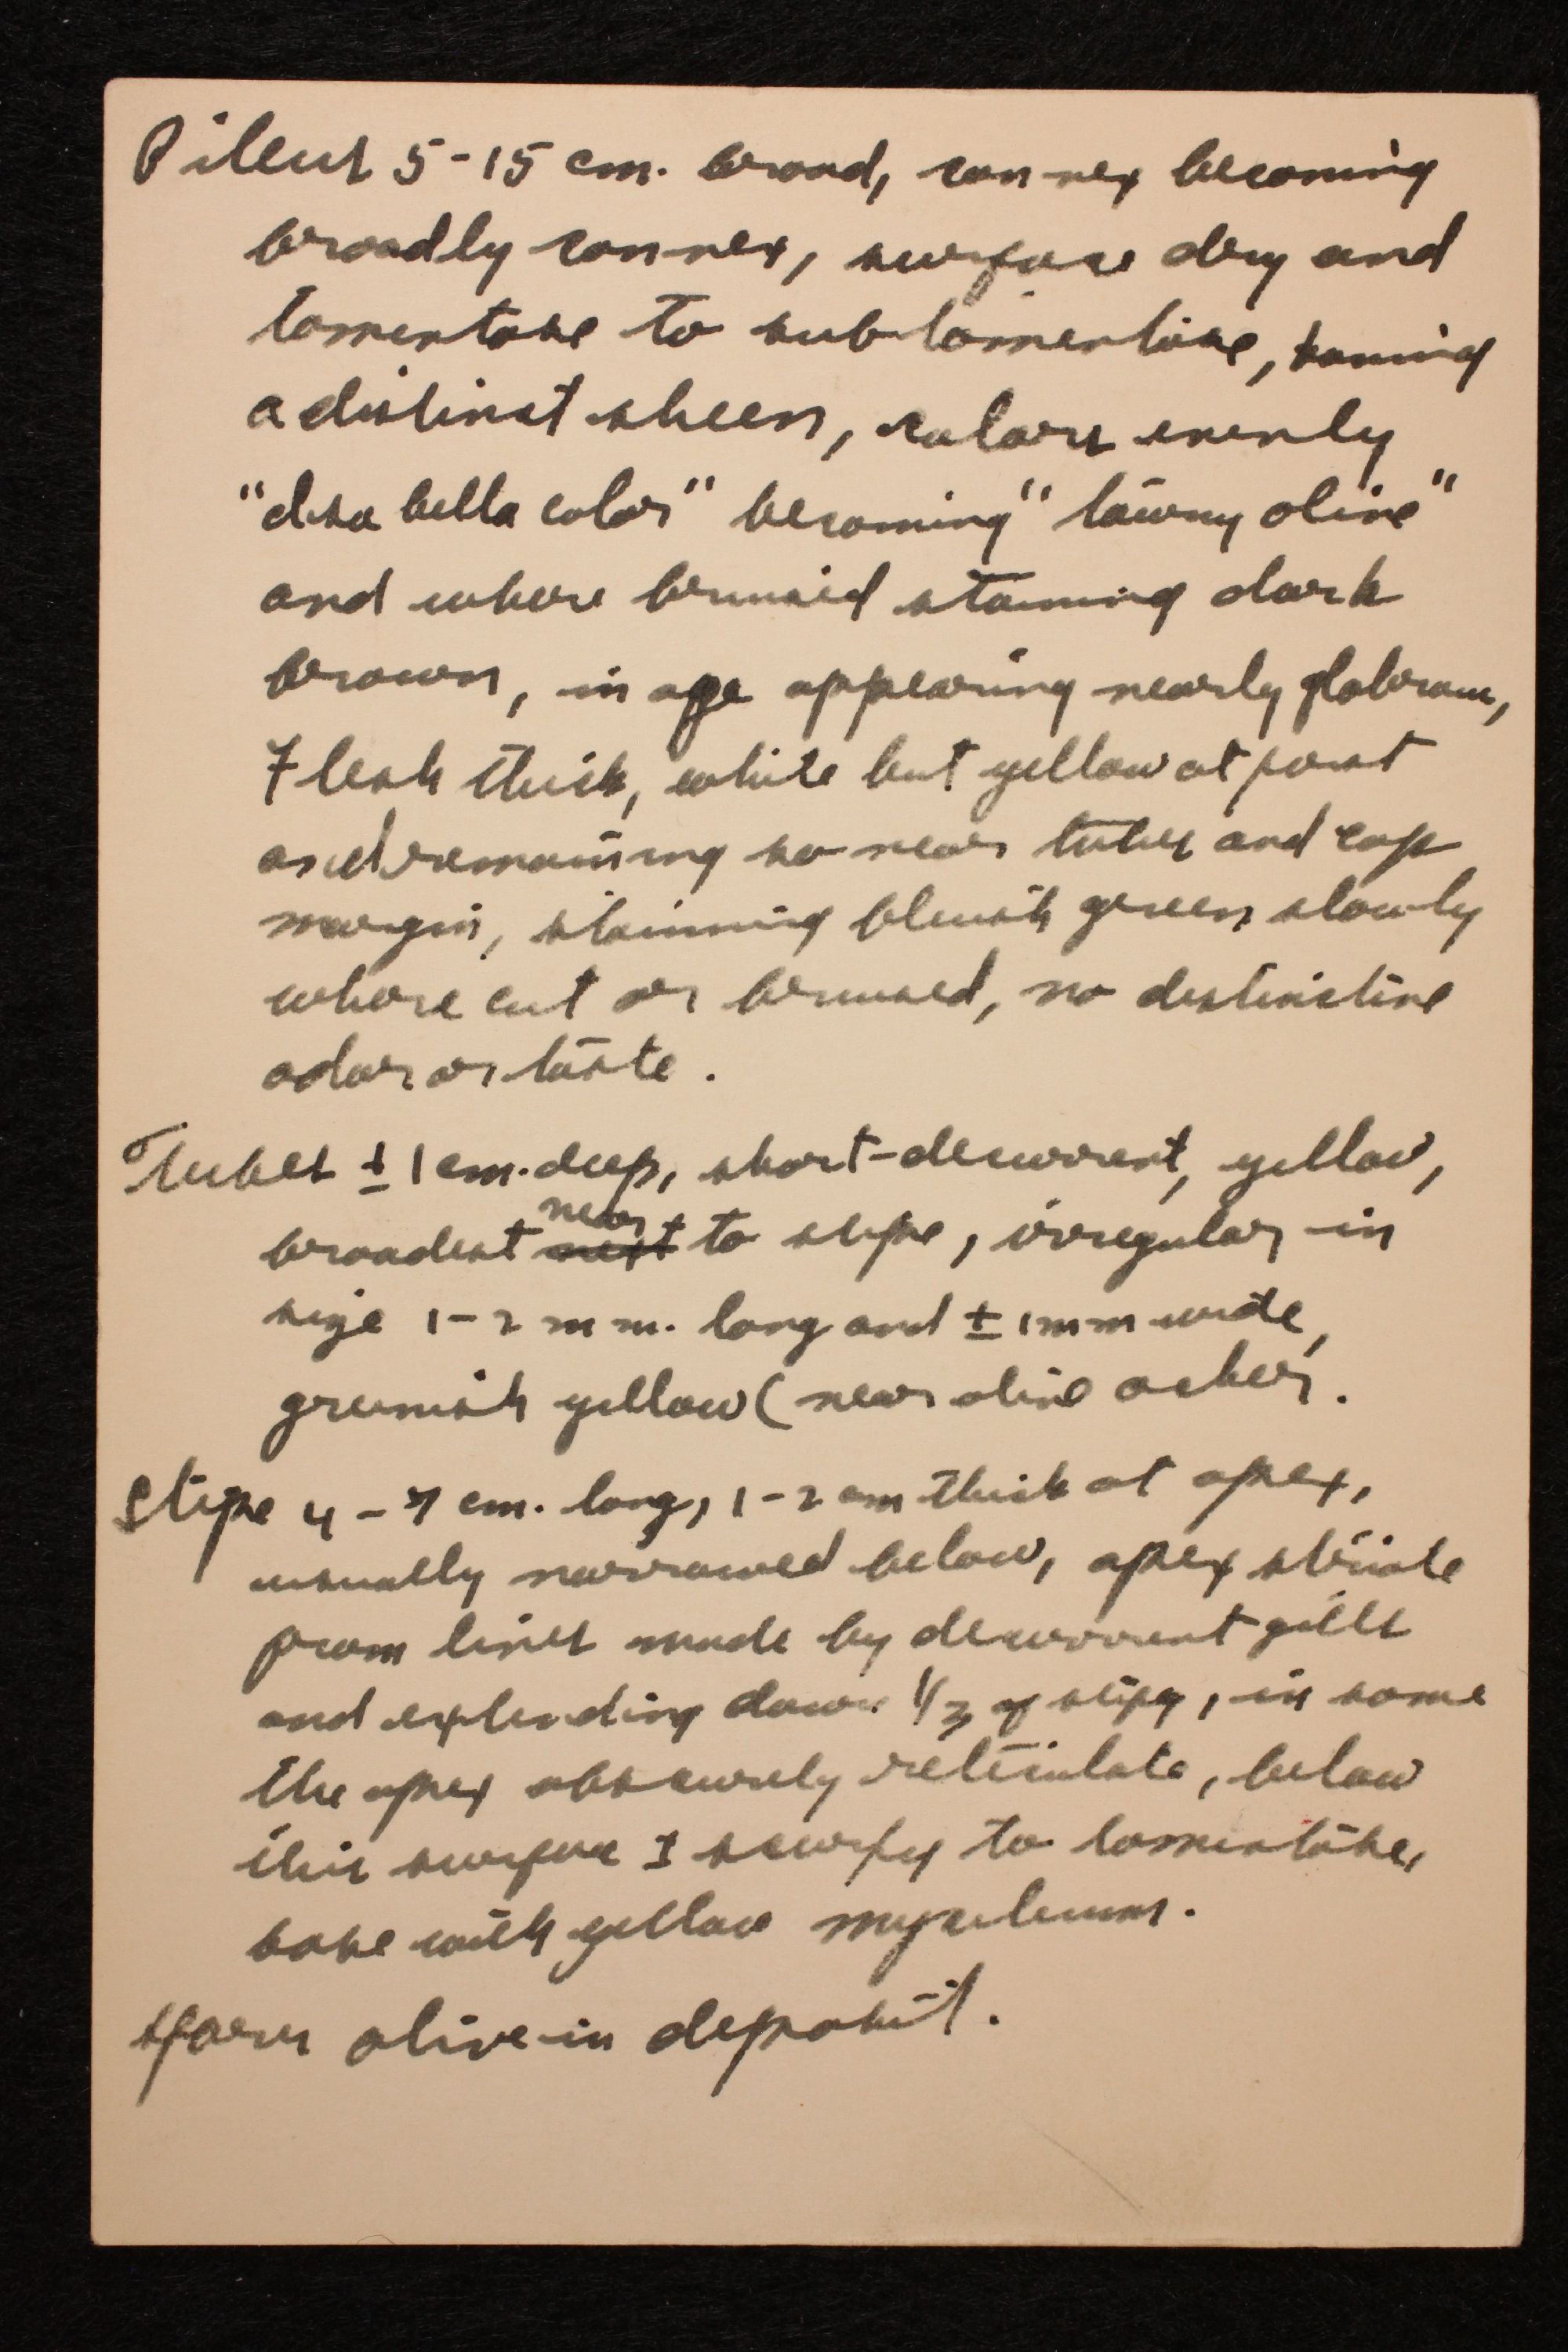 Pileus 5-15 cm. broad, convex becoming
broadly convex, surface dry and
tomentose to subtomentose, having
a distinct sheen, colors evenly
"Isabella color" becoming "tawny olive"
and where bruised staining dark
brown, in age appearing nearly glabrous,
Flesh thick, white but yellow at first
and remaining so near tubes and cap
margin, staining bluish green slowly
where cut or bruised, no distinctive
odor or taste.
Tubes ± 1 cm. deep, short-decurrent, yellow,
near
broadest next to stipe, irregular in
size 1-2 mm. long and ± 1 mm wide,
greenish yellow (near olive ocher.
Stipe 4-7 cm. long, 1-2 cm thick at apex,
usually narrowed below, apex striate
from lines made by decurrent gills
and extending down 1/3 of stipe, in some
the apex obscurely reticulate, below
this surface ± scurfy to tomentose,
base with yellow mycelium.
Spores olive in deposit.